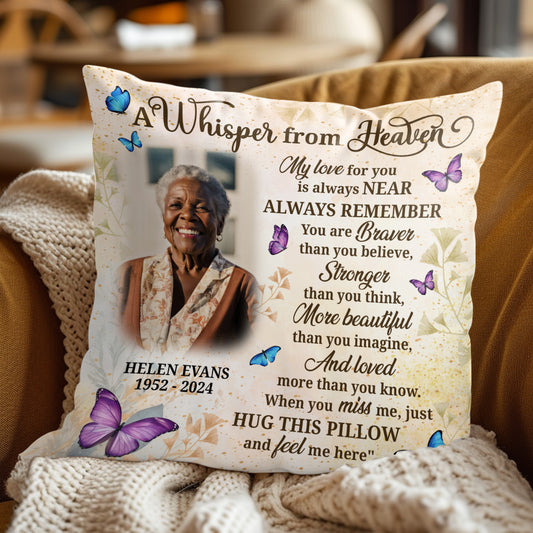 A Whisper from Heaven
My love for you
is always NEAR
ALWAYS REMEMBER
You are Braver
than you believe,
Stronger
than you think,
More beautiful
than you imagine,
And loved
more than you know.
When you miss me, just
HUG THIS PILLOW
and feel me here"
HELEN EVANS
1952 - 2024